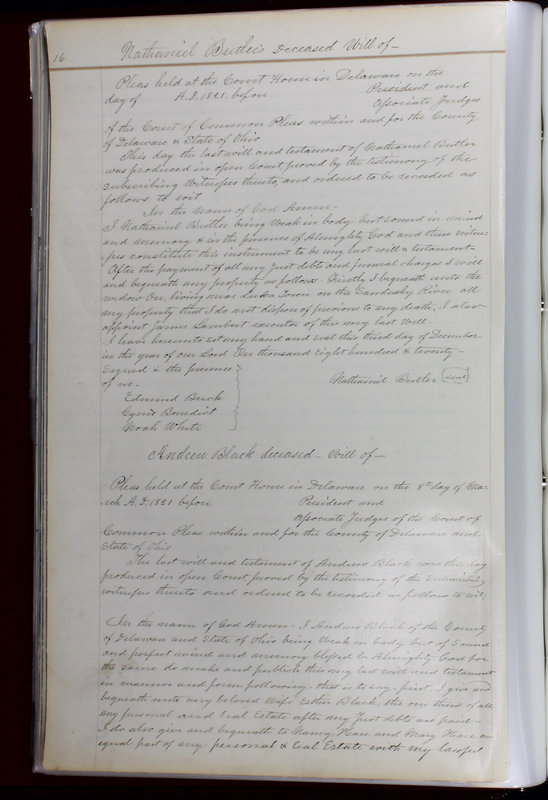 16 Nathaniel Butler's Deceased Will of—
Pleas held at the Court House in Delaware on the
day of A.D. 1821. before President and
Associate Judges
of the Court of Common Pleas within and for the County
of Delaware & State of Ohio
This day the last will and testament of Nathaniel Butler
was produced in open Court, proved by the testimony of the
subscribing witnesses thereto, and ordered to be recorded as
follows to wit
In the name of God Amen—
I Nathaniel Butler being Weak in body but sound in mind
and memory & in the presence of Almighty God and these witne-
-sses constitute this instrument to be my last will & testament—
After the payment of all my just debts and funeral charges I will
and bequeath my property as follows Firstly I bequeath unto the
widow living near Town on the Sandusky River all
my property that I do not dispose of previous to my death, I also
appoint James Lambert executor of this my last Will—
I have hereunto set my hand and seal this third day of December
in the year of our Lord One thousand eight hundred & twenty—
Signed in the presence
of us— Nathaniel Butler {seal}
Edmund Buck
Cyrus Benedict
Noah White
Andrew Black deceased— Will of—
Pleas held at the Court House in Delaware on the 8th day of Ma-
rch A.D. 1821 before President and
associate Judges of the Court of
Common Pleas within and for the County of Delaware and
State of Ohio
The last will and testament of Andrew Black was this day
produced in open Court proved by the testimony of the Subscribing
witnesses thereto and ordered to be recorded as follows to wit
In the name of God Amen— I Andrew Black of the County
of Delaware and State of Ohio being Weak in body but of Sound
and perfect mind and memory blessed be Almighty God for
the same do make and publish this my last will and testament
in manner and form following— that is to say first, I give and
bequeath unto my beloved Wife Esther Black, the one third of all
my personal and real Estate after my just debts are paid—
I do also give and bequeath to Nancy Hare and Mary Hare an
equal part of my personal & real Estate with my lawful